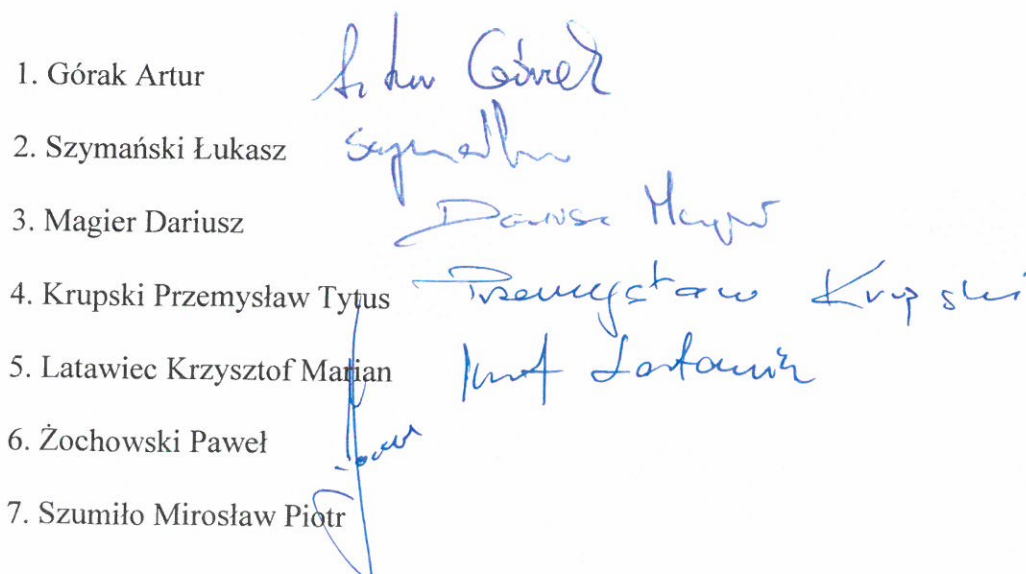 1. Górak Artur Artur Górak
2. Szymański Łukasz
3. Magier Dariusz Dariusz Magier
4. Krupski Przemysław Tytus Przemysław Krupski
5. Latawiec Krzysztof Marian Latawiec
6. Żochowski Paweł
7. Szumiło Mirosław Piotr